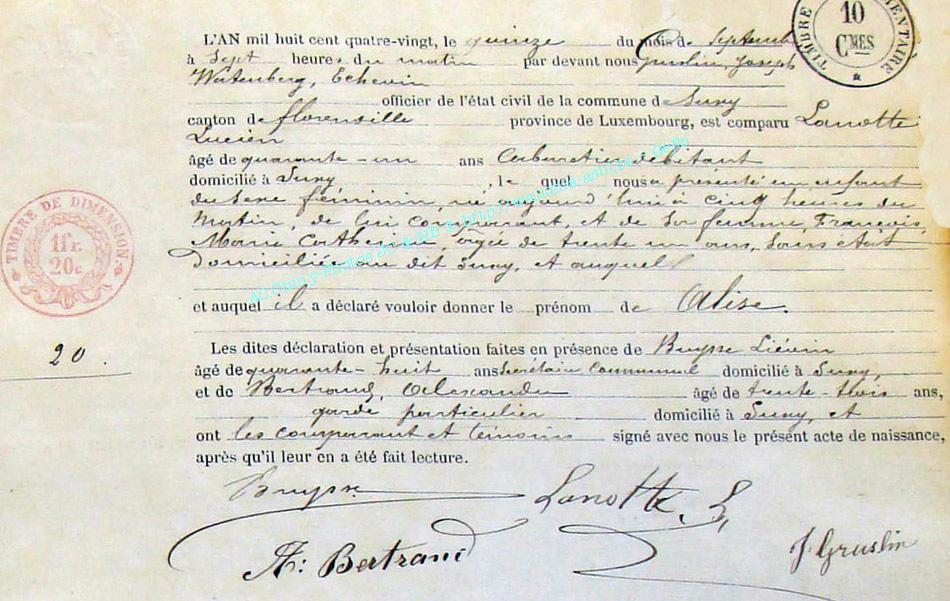 TIMBRE
10
CMES
L'AN mil huit cent quatre-vingt, le quinze du mois de Septembre
à Sept heures du matin par devant nous Gruslin, Joseph
Echevin
officier de l'état civil de la commune de Suny
canton de florenville province de Luxembourg, est comparu Lanotte
Lucien
âgé de quarante-un ans Cabaretier débitant
domicilié à Suny, le quel nous a présenté un enfant
du Sexe féminin, né aujourd'hui à cinq heures du
Matin, de lui comparant, et de Son femme, François,
Marie Catherine, agée de trente un ans, Sans état
domiciliée au dit Suny, et auquel
et auquel il a déclaré vouloir donner le prénom de Alise.
TIMBRE DE DIMENSION
1 fr.
20c
20.
Les dites déclaration et présentation faites en présence de Buysse Liévin
âgé de quarante-huit ans Secrétaire Communal domicilié à Suny,
et de Bertrand, Alexandre âgé de trente-trois ans,
garde particulier domicilié à Suny, et
ont les comparant et témoins signé avec nous le présent acte de naissance,
après qu'il leur en a été fait lecture.
Buysse Lanotte, L,
A: Bertrand J Gruslin